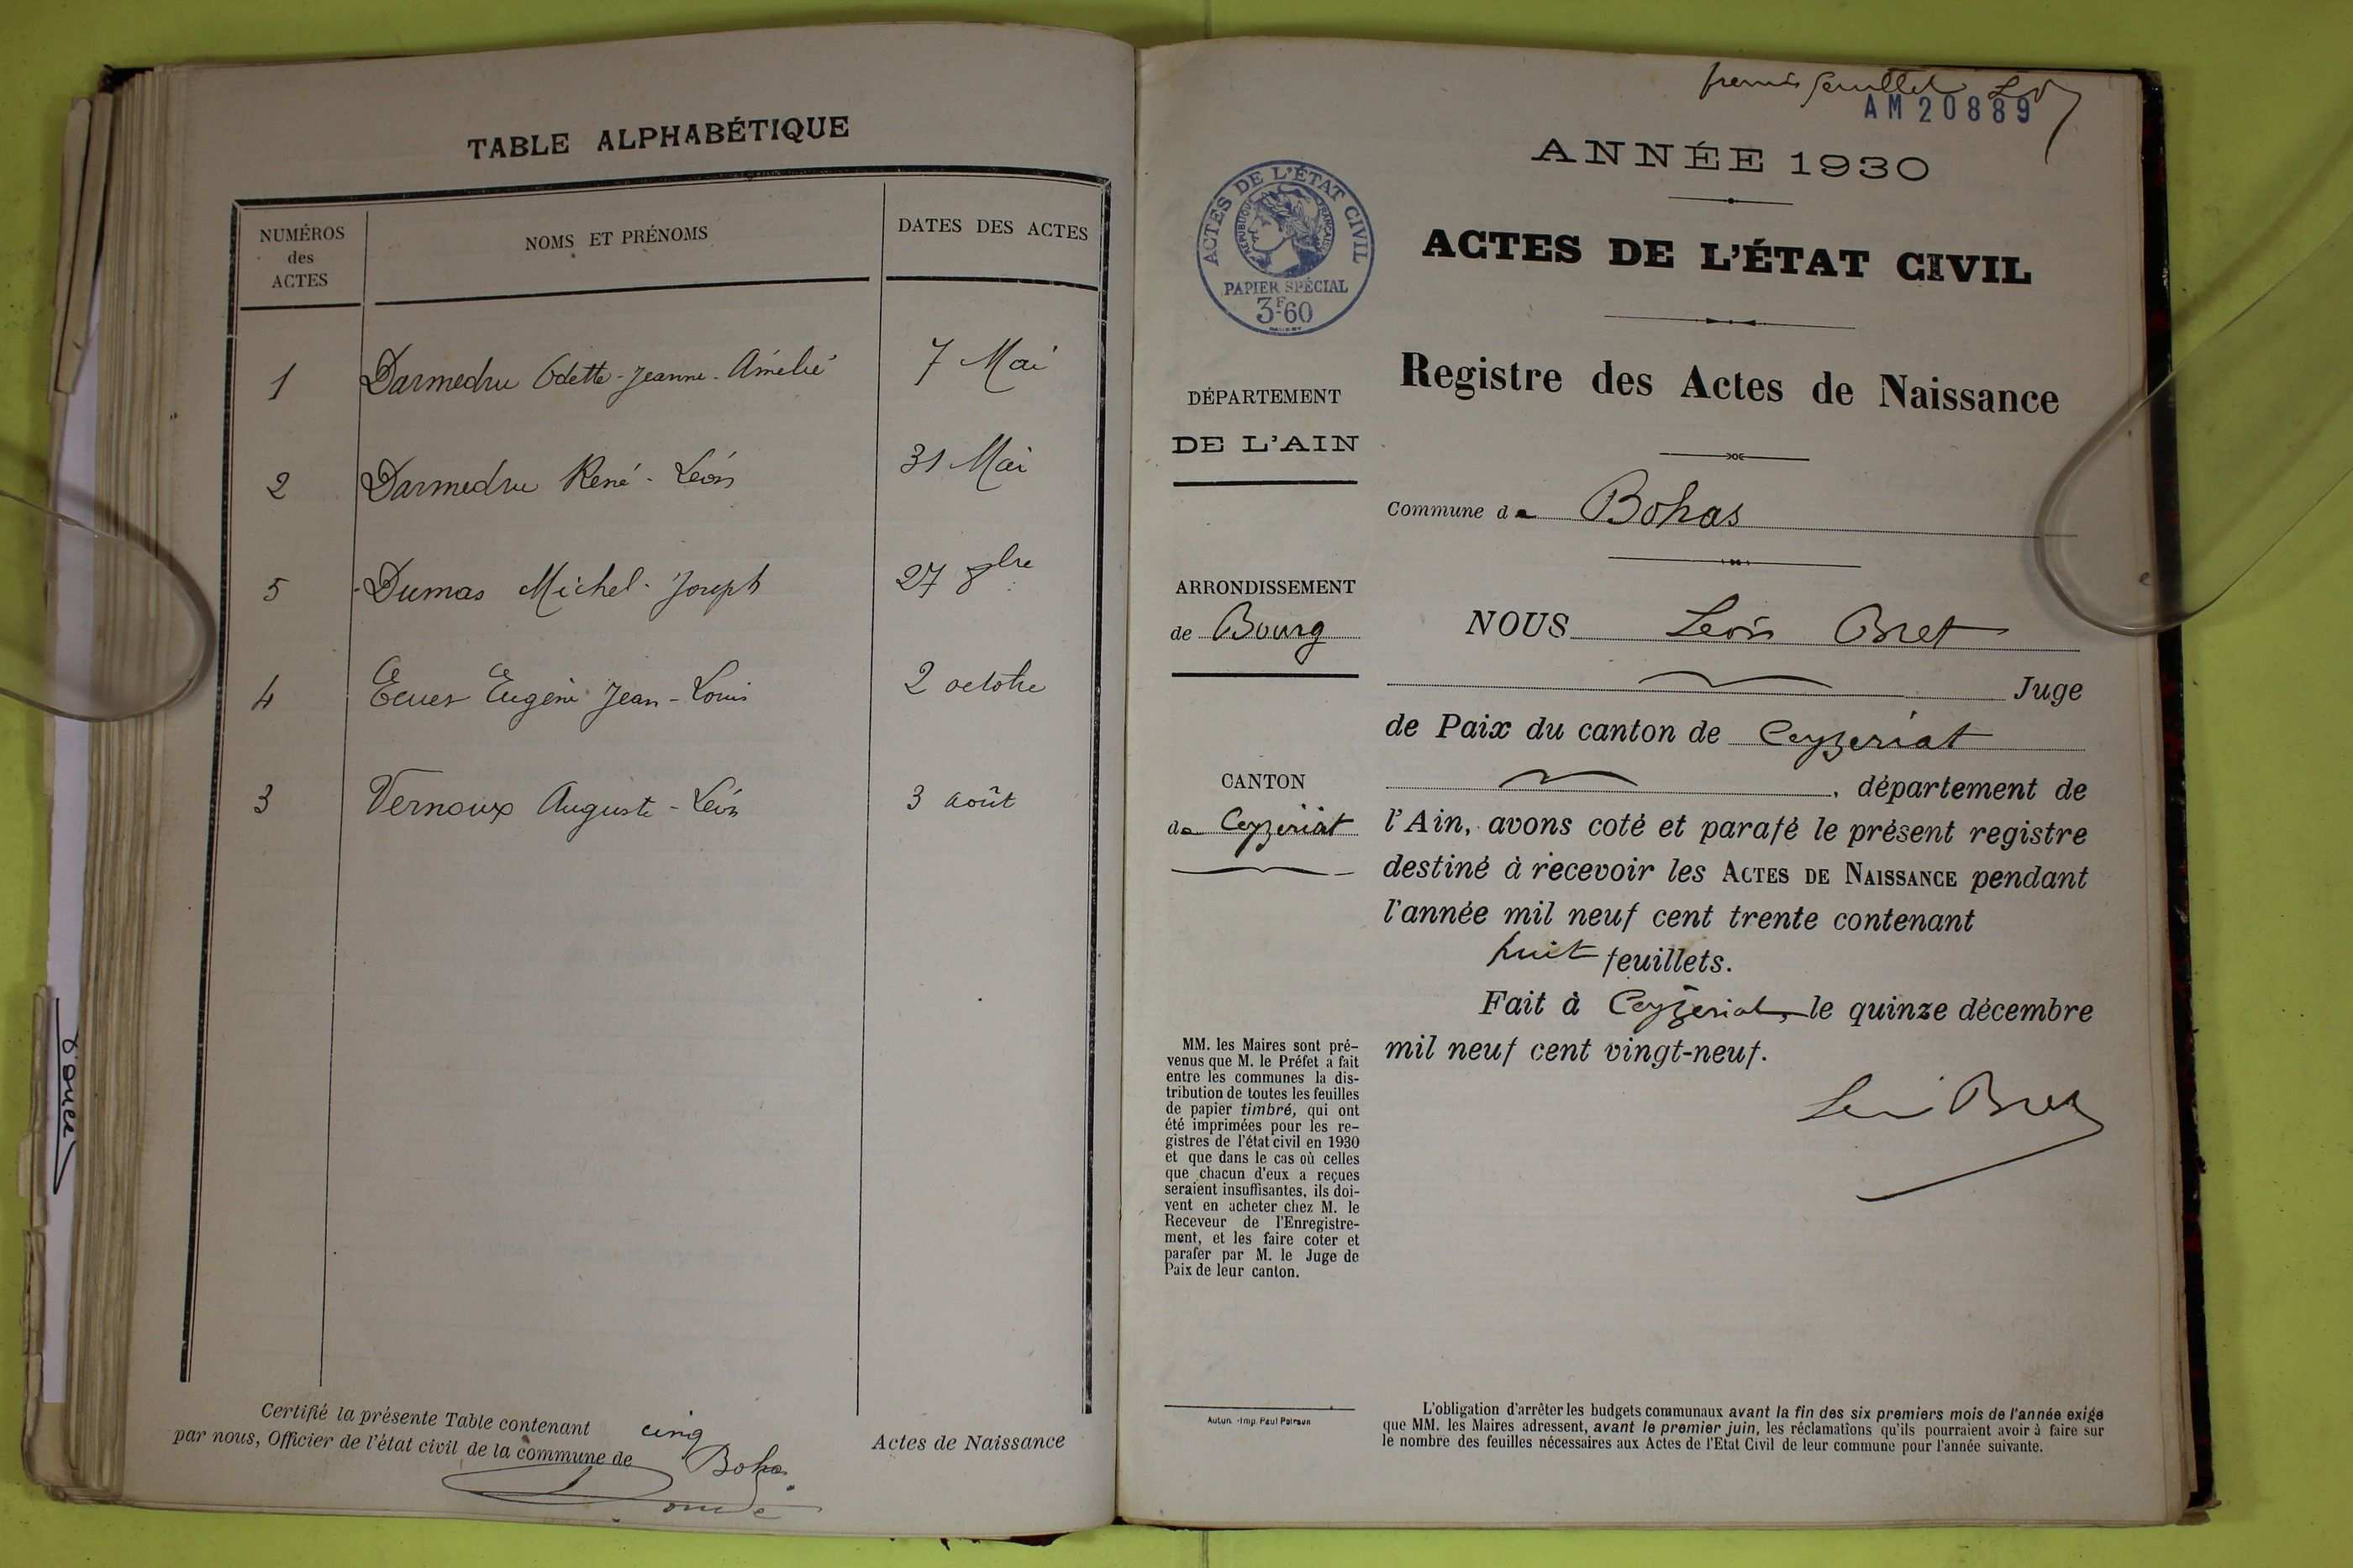 TABLE ALPHABÉTIQUE
NUMÉROS
des
ACTES
NOMS ET PRÉNOMS
DATES DES ACTES
1 Darmedru Odette-Jeanne-Amélie 7 Mai
2 Darmedru René-Léon 31 Mai
5 Dumas Michel-Joseph 27 8bre
4 Ecuer Eugène Jean-Louis 2 octobre
3 Vernoux Auguste-Léon 3 août
Certifié la présente Table contenant cinq
par nous, Officier de l'état civil de la commune de Bohas
Actes de Naissance
premier feuillet
AM20889
ANNÉE 1930
ACTES DE L'ÉTAT CIVIL
RÉPUBLIQUE FRANÇAISE
PAPIER SPÉCIAL
3F60
ACTES DE L'ÉTAT CIVIL
Registre des Actes de Naissance
Commune de Bohas
NOUS Léon Bret
Juge
de Paix du canton de Ceyzeriat
, département de
l'Ain, avons coté et parafé le présent registre
destiné à recevoir les ACTES DE NAISSANCE pendant
l'année mil neuf cent trente contenant
huit feuillets.
Fait à Ceyzeriat, le quinze décembre
mil neuf cent vingt-neuf.
Léon Bret
DÉPARTEMENT
DE L'AIN
ARRONDISSEMENT
de Bourg
CANTON
de Ceyzeriat
MM. les Maires sont pré-
venus que M. le Préfet a fait
entre les communes la dis-
tribution de toutes les feuilles
de papier timbré, qui ont
été imprimées pour les re-
gistres de l'état civil en 1930
et que dans le cas où celles
que chacun d'eux a reçues
seraient insuffisantes, ils doi-
vent en acheter chez M. le
Receveur de l'Enregistre-
ment, et les faire coter et
parafer par M. le Juge de
Paix de leur canton.
Autun. - Imp. Paul
L'obligation d'arrêter les budgets communaux avant la fin des six premiers mois de l'année exige
que MM. les Maires adressent, avant le premier juin, les réclamations qu'ils pourraient avoir à faire sur
le nombre des feuilles nécessaires aux Actes de l'Etat Civil de leur commune pour l'année suivante.